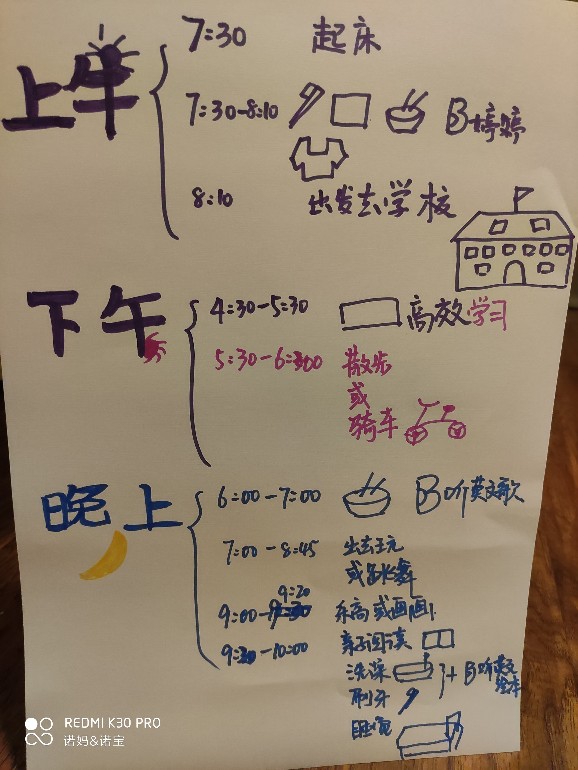 上午
7:30 起床
7:30-8:10 B 婷婷
8:10 出发去学校
下午
4:30-5:30 高效学习
5:30-6:00 散步
或
骑车
晚上
6:00-7:00 B听英文歌
7:00-8:45 出去玩
或跳舞
9:20
9:00- 乐高或画画
9:30-10:00 亲子阅读
洗澡 + B听英文
绘本
刷牙
睡觉
REDMI K30 PRO
诺妈&诺宝